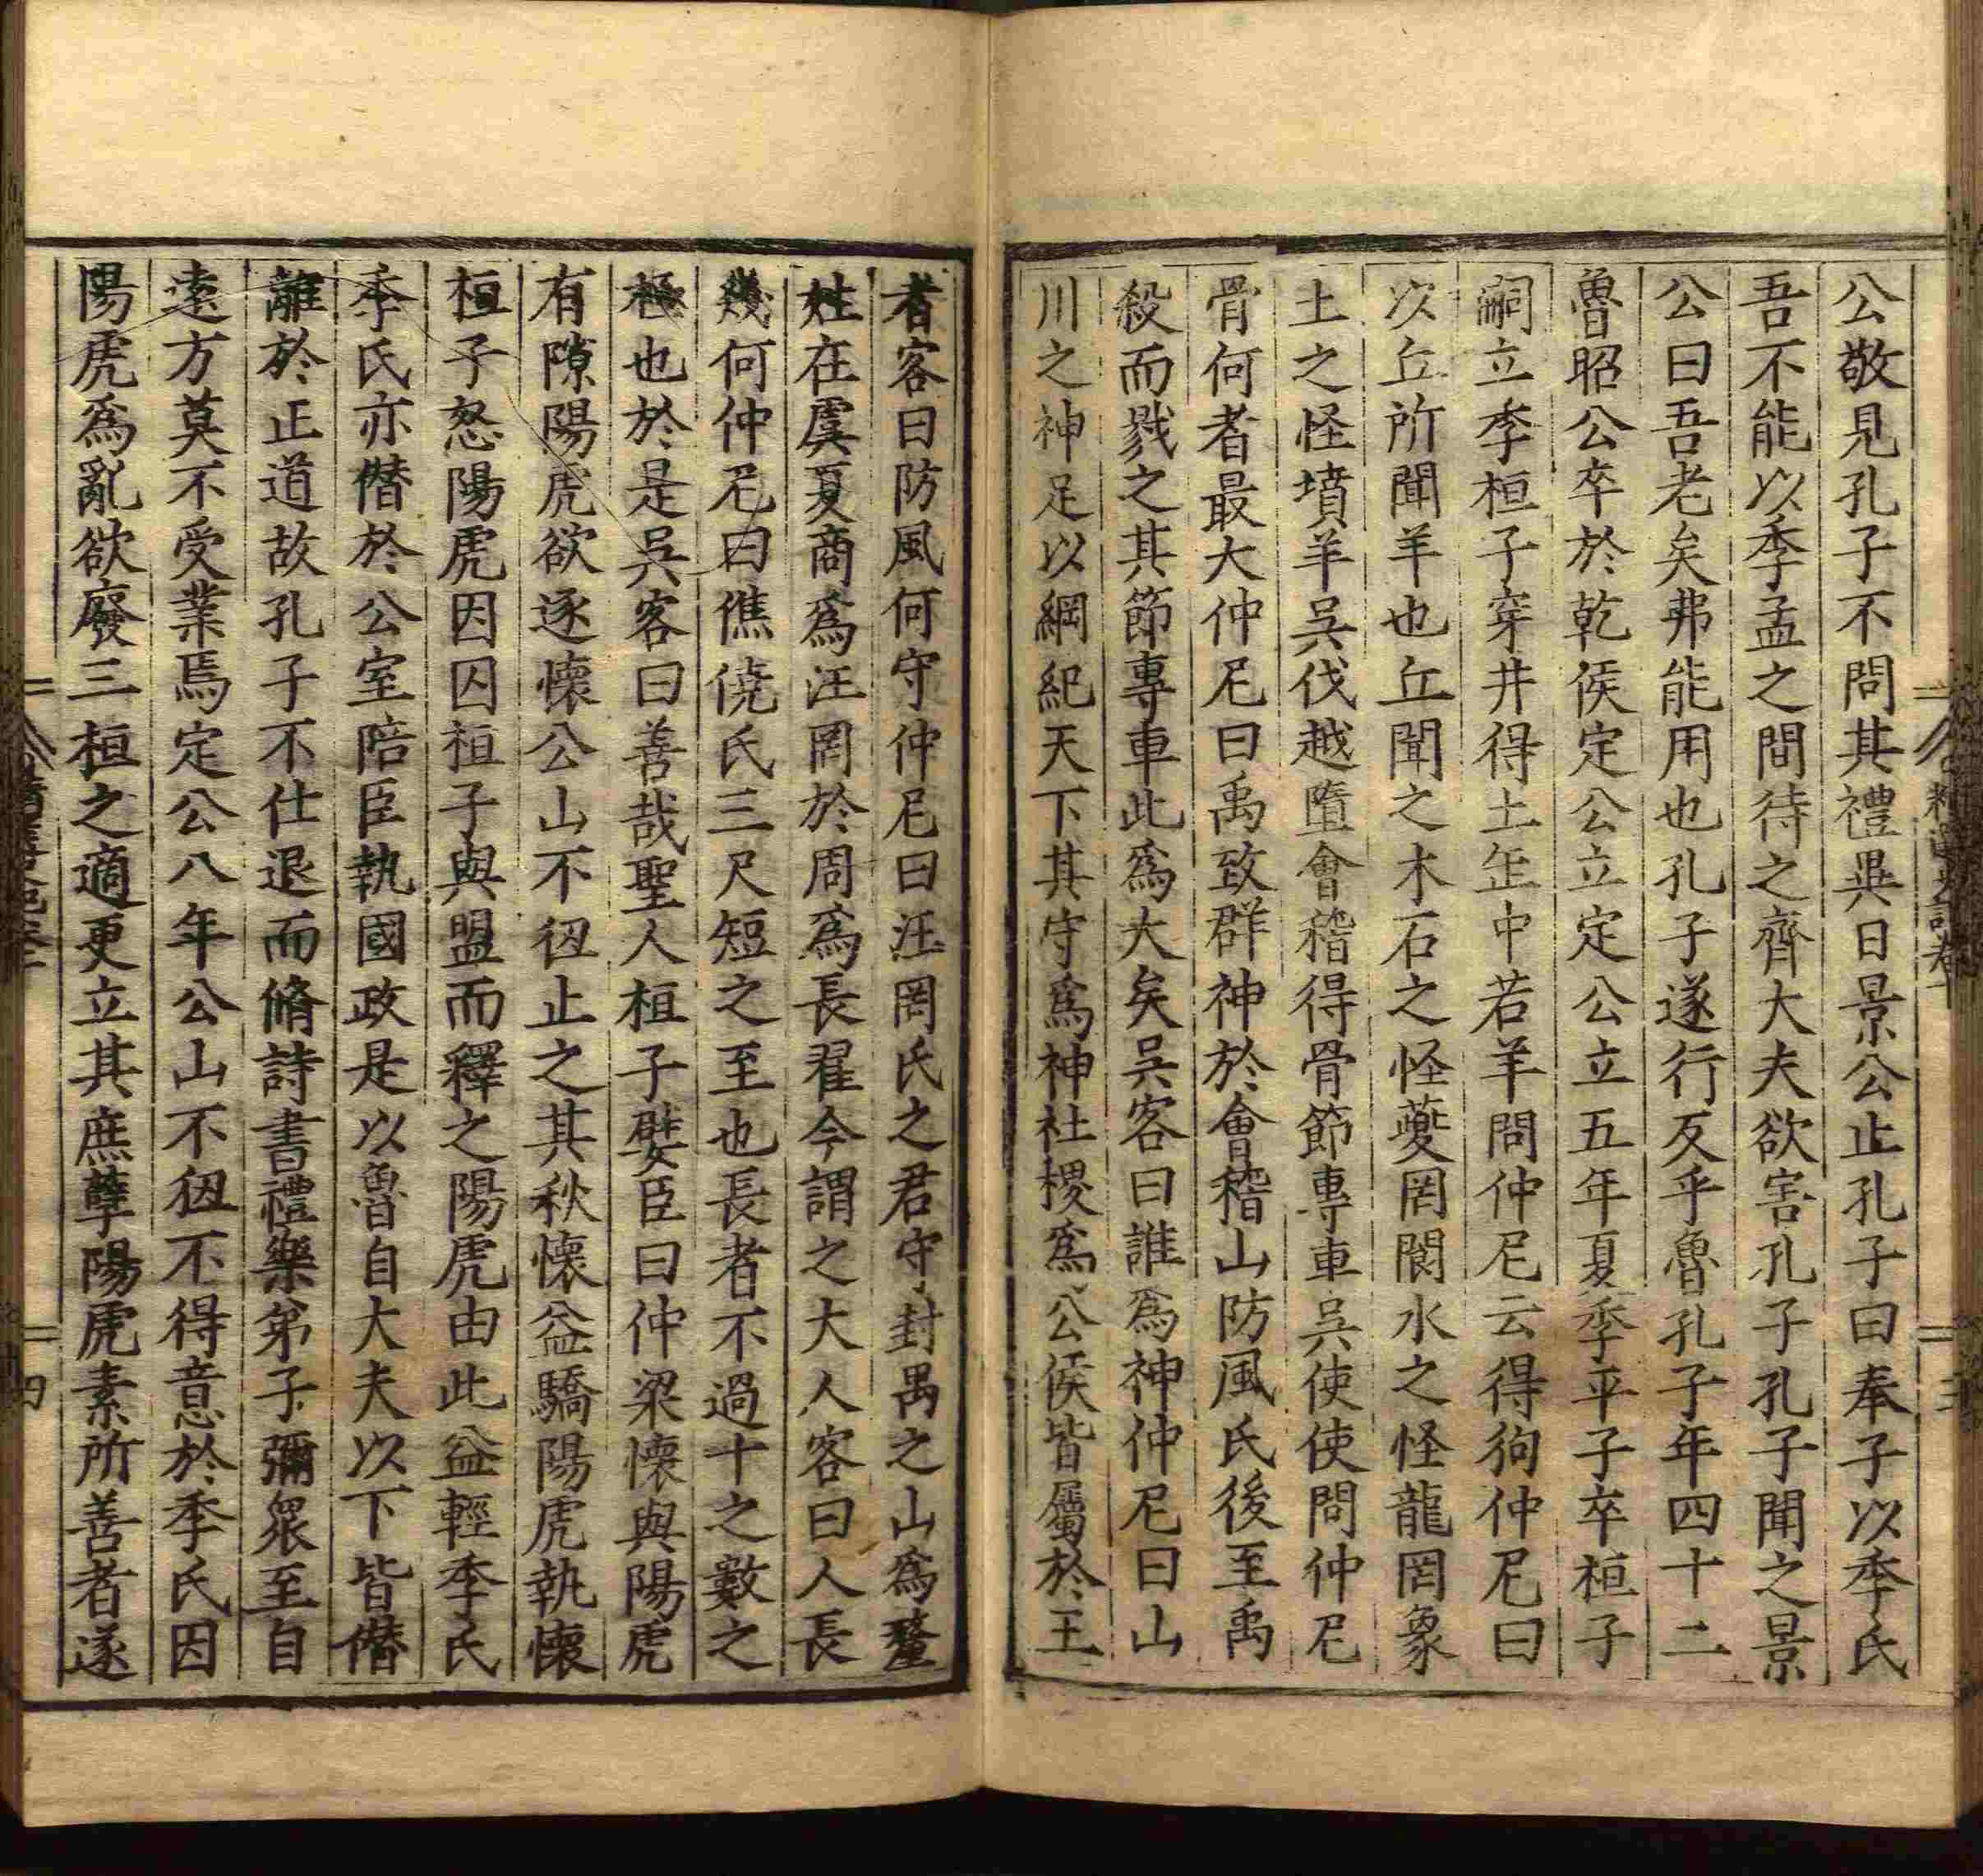 公敬見孔子不問其禮異日景公止孔子曰奉子以季氏
吾不能以季孟之間待之齊大夫欲害孔子孔子聞之景
公曰吾老矣弗能用也孔子遂行反乎魯孔子年四十二
魯昭公卒於乾侯定公立定公立五年夏季平子卒桓子
嗣立季桓子穿井得土缶中若羊問仲尼云得狗仲尼曰
以丘所聞羊也丘聞之木石之怪夔罔閬水之怪龍罔象
土之怪墳羊吳伐越墮會稽得骨節專車吳使使問仲尼
骨何者最大仲尼曰禹致群神於會稽山防風氏後至禹
殺而戮之其節專車此為大矣吳客曰誰為神仲尼曰山
川之神足以綱紀天下其守為神社稷為公侯皆屬於王
者客曰防風何守仲尼曰汪罔氏之君守封禺之山為釐
姓在虞夏商為汪罔於周為長翟今謂之大人客曰人長
幾何仲尼曰僬僥氏三尺短之至也長者不過十之數之
極也於是吳客曰善哉聖人桓子嬖臣曰仲梁懷與陽虎
有隙陽虎欲逐懷公山不狃止之其秋懷益驕陽虎執懷
桓子怒陽虎因囚桓子與盟而釋之陽虎由此益輕季氏
季氏亦僭於公室陪臣執國政是以魯自大夫以下皆僭
離於正道故孔子不仕退而脩詩書禮樂弟子彌眾至自
遠方莫不受業焉定公八年公山不狃不得意於季氏因
陽虎為亂欲廢三桓之適更立其庶孽陽虎素所善者遂
四